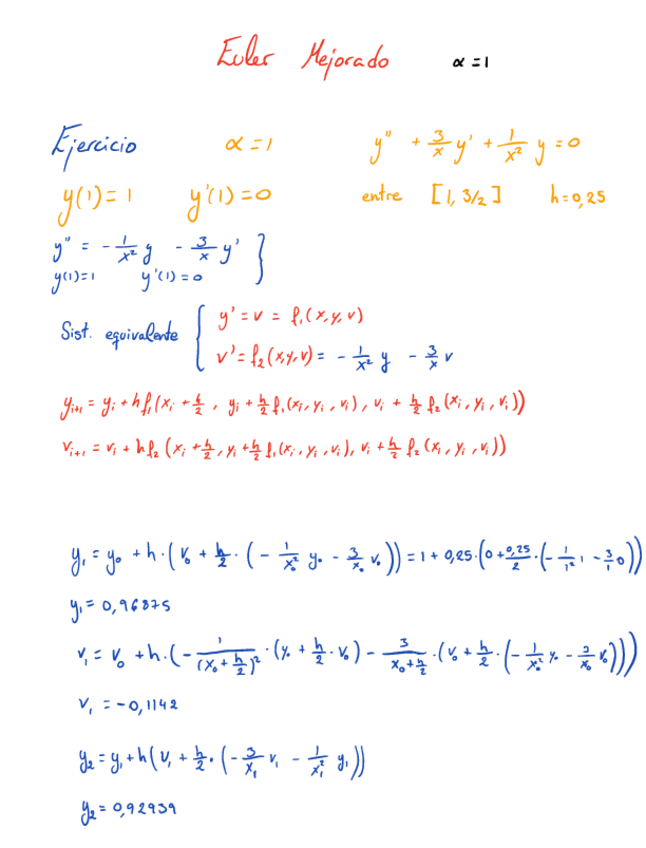 Euler Mejorado α = 1
Ejercicio α = 1 y'' + 3/x y' + 1/x² y = 0
y(1) = 1 y'(1) = 0 entre [1, 3/2] h = 0,25
y'' = - 1/x² y - 3/x y' }
y(1) = 1 y'(1) = 0
Sist. equivalente { y' = v = f₁(x, y, v)
v' = f₂(x, y, v) = - 1/x² y - 3/x v
yᵢ₊₁ = yᵢ + h f₁(xᵢ + h/2, yᵢ + h/2 f₁(xᵢ, yᵢ, vᵢ), vᵢ + h/2 f₂(xᵢ, yᵢ, vᵢ))
vᵢ₊₁ = vᵢ + h f₂(xᵢ + h/2, yᵢ + h/2 f₁(xᵢ, yᵢ, vᵢ), vᵢ + h/2 f₂(xᵢ, yᵢ, vᵢ))
y₁ = y₀ + h · (v₀ + h/2 · (- 1/x₀² y₀ - 3/x₀ v₀)) = 1 + 0,25 · (0 + 0,25/2 · (- 1/1² 1 - 3/1 0))
y₁ = 0,96875
v₁ = v₀ + h · (- 1/(x₀ + h/2)² · (y₀ + h/2 · v₀) - 3/(x₀ + h/2) · (v₀ + h/2 · (- 1/x₀² y₀ - 3/x₀ v₀)))
v₁ = -0,1142
y₂ = y₁ + h (v₁ + h/2 · (- 3/x₁ v₁ - 1/x₁² y₁))
y₂ = 0,92939